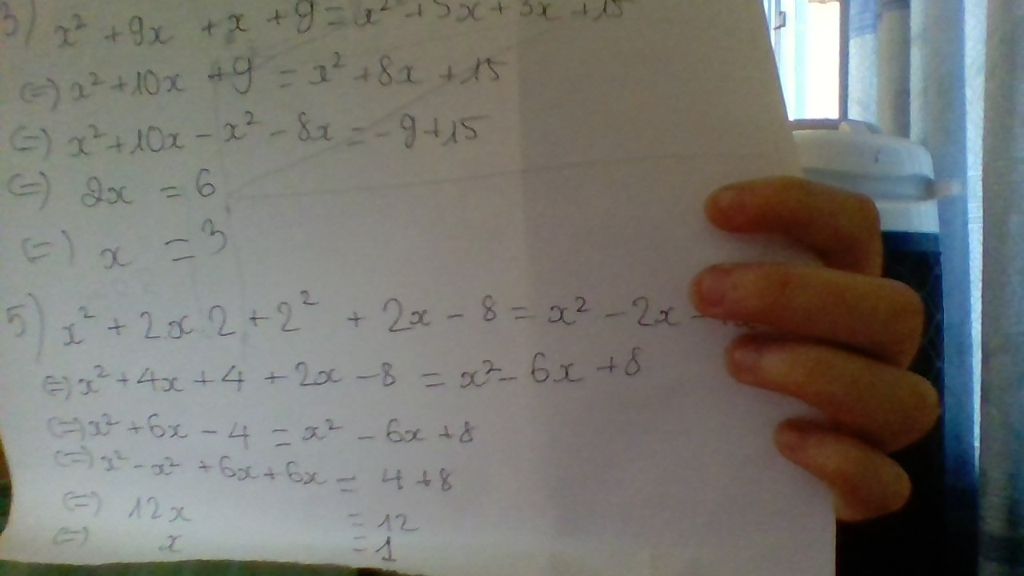 3) x² + 9x + x + 9 = x² + 5x + 3x + 15
(=) x² + 10x + 9 = x² + 8x + 15
(=) x² + 10x - x² - 8x = - 9 + 15
(=) 2x = 6
(=) x = 3
5) x² + 2x 2 + 2² + 2x - 8 = x² - 2x -
(=) x² + 4x + 4 + 2x - 8 = x² - 6x + 8
(=) x² + 6x - 4 = x² - 6x + 8
(=) x² - x² + 6x + 6x = 4 + 8
(=) 12x = 12
(=) x = 1